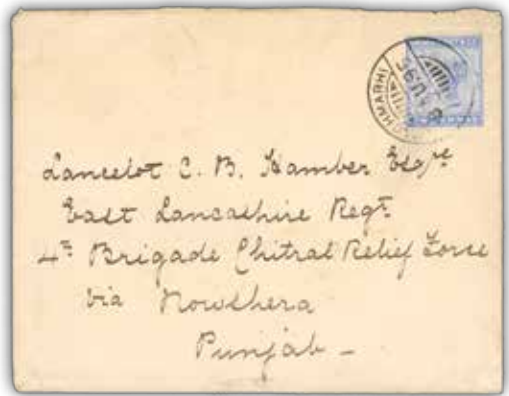 PACHMARHI
Lancelot C. B. Hamber Esqre
East Lancashire Regt
4th Brigade Chitral Relief Force
via Nowshera
Punjab -